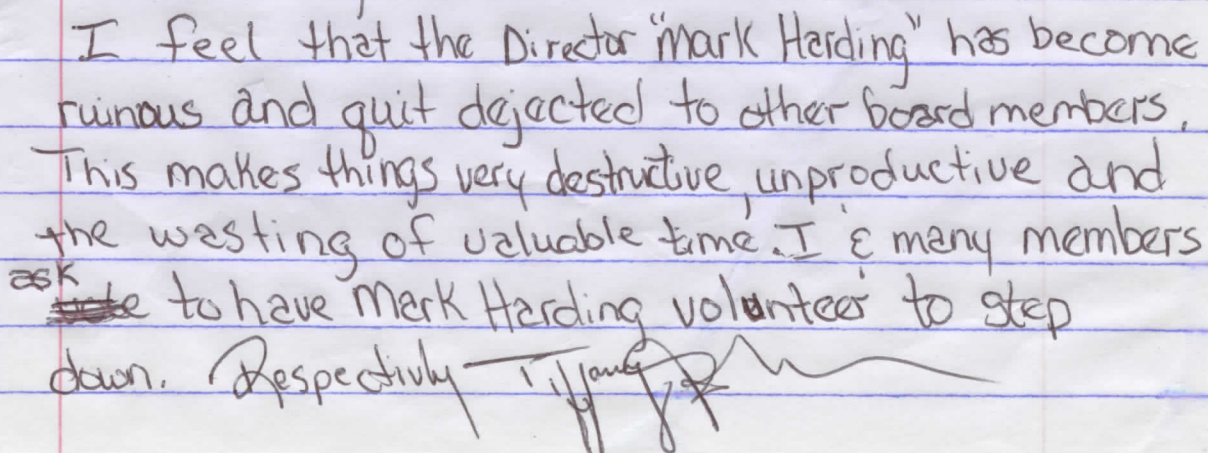 I feel that the Director "Mark Harding" has become
ruinous and quit dejected to other board members.
This makes things very destructive, unproductive and
the wasting of valuable time. I & many members
ask to have Mark Harding volunteer to step
down. Respectivly Tiffany R